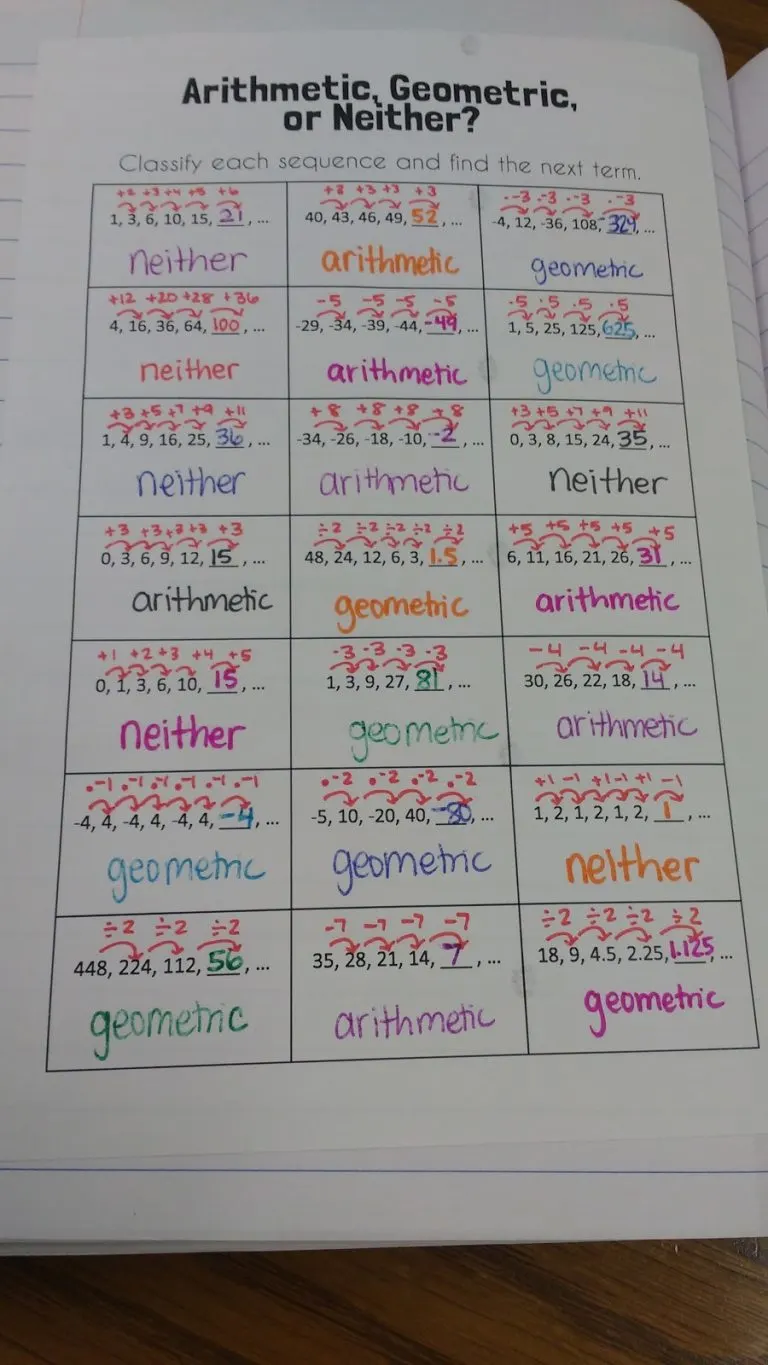 Arithmetic, Geometric,
or Neither?
Classify each sequence and find the next term.
+2 +3 +4 +5 +6
1, 3, 6, 10, 15, 21, ...
neither
+3 +3 +3 +3
40, 43, 46, 49, 52, ...
arithmetic
·-3 ·-3 ·-3 ·-3
-4, 12, -36, 108, -324, ...
geometric
+12 +20 +28 +36
4, 16, 36, 64, 100, ...
neither
-5 -5 -5 -5
-29, -34, -39, -44, -49, ...
arithmetic
·5 ·5 ·5 ·5
1, 5, 25, 125, 625, ...
geometric
+3 +5 +7 +9 +11
1, 4, 9, 16, 25, 36, ...
neither
+8 +8 +8 +8
-34, -26, -18, -10, -2, ...
arithmetic
+3 +5 +7 +9 +11
0, 3, 8, 15, 24, 35, ...
neither
+3 +3 +3 +3 +3
0, 3, 6, 9, 12, 15, ...
arithmetic
÷2 ÷2 ÷2 ÷2 ÷2
48, 24, 12, 6, 3, 1.5, ...
geometric
+5 +5 +5 +5 +5
6, 11, 16, 21, 26, 31, ...
arithmetic
+1 +2 +3 +4 +5
0, 1, 3, 6, 10, 15, ...
neither
·3 ·3 ·3 ·3
1, 3, 9, 27, 81, ...
geometric
-4 -4 -4 -4
30, 26, 22, 18, 14, ...
arithmetic
·-1 ·-1 ·-1 ·-1 ·-1 ·-1
-4, 4, -4, 4, -4, 4, -4, ...
geometric
·-2 ·-2 ·-2 ·-2
-5, 10, -20, 40, -80, ...
geometric
+1 -1 +1 -1 +1 -1
1, 2, 1, 2, 1, 2, 1, ...
neither
÷2 ÷2 ÷2
448, 224, 112, 56, ...
geometric
-7 -7 -7 -7
35, 28, 21, 14, 7, ...
arithmetic
÷2 ÷2 ÷2 ÷2
18, 9, 4.5, 2.25, 1.125, ...
geometric